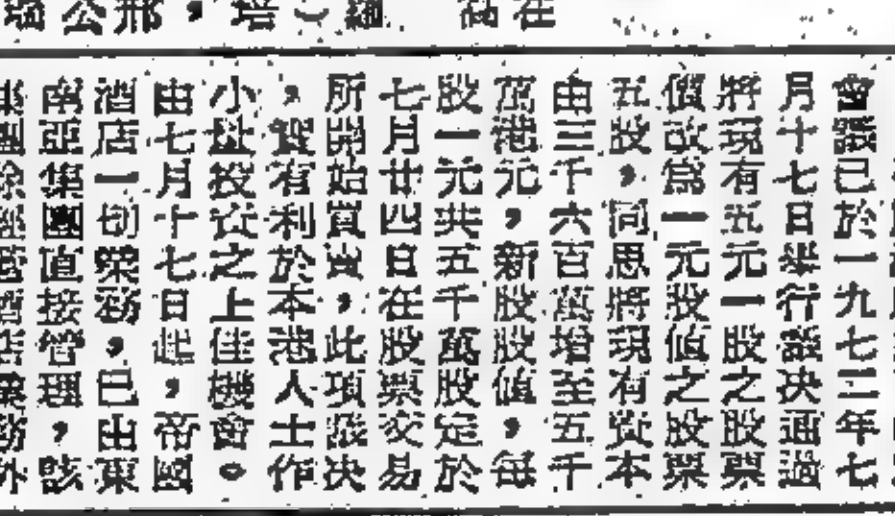 會議已於一九七二年七
月十七日舉行議决通過
將現有五元一股之股票
價改爲一元股值之股票
五股,同思將現有資本
由三千六百萬增至五千
萬港元,新股股值,每
股一元共五千萬股定於
七月廿四日在股票交易
所開始買賣,此項議决
,實有利於本港人士作
小量投資之上佳機會。
由七月十七日起,帝國
酒店一切業務,已由東
南亞集團直接管理,該